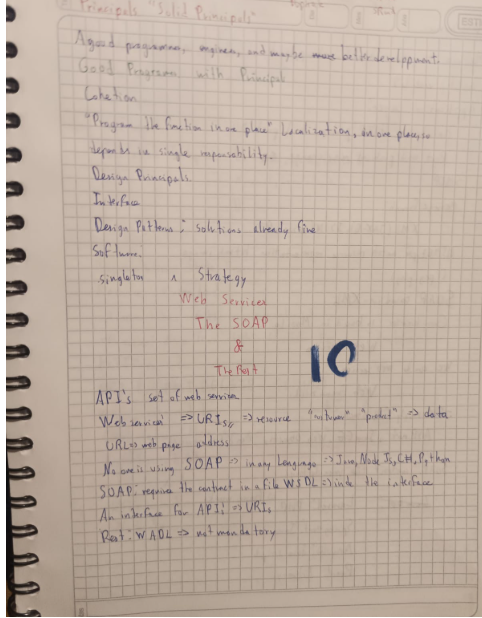 Principals "Solid Principals"
A good programmer, engineer, and maybe better development.
Good Programs with Principal
Cohetion
"Program the function in one place" Localization, in one place, so
depends in single responsability.
Design Principals
Interface
Design Patterns: solutions already fine
Software.
singleton Strategy
Web Services
The SOAP
&
The Rest
10
API's set of web service
Web services => URIs => resource "return" "product" => data
URL => web page address
No one is using SOAP => in any Language => Java, Node Js, C#, Python
SOAP: requires the contract in a file WSDL => inde the interface
An interface for API's => URIs
Rest: WADL => not mandatory